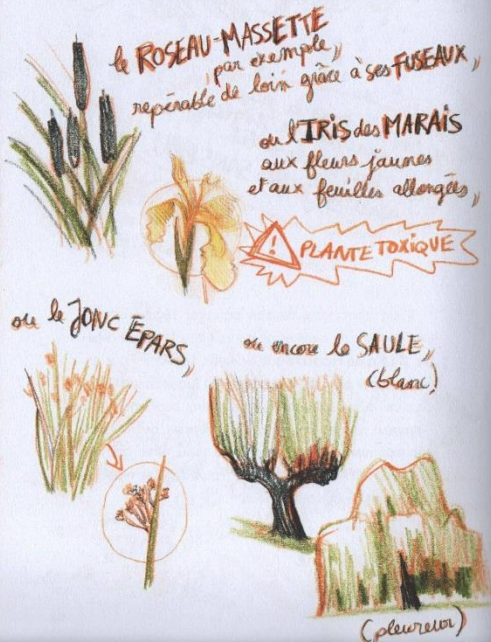 le ROSEAU-MASSETTE
par exemple,
repérable de loin grâce à ses FUSEAUX,
ou l'IRIS des MARAIS
aux fleurs jaunes
et aux feuilles allongées,
! PLANTE TOXIQUE
ou le JONC ÉPARS,
ou encore le SAULE,
(blanc)
(pleureur)